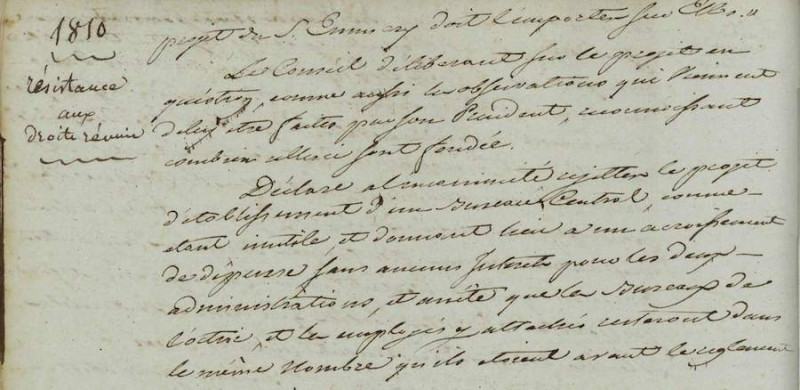 1810
résistance
aux
droits réunis
projet du S. Emmery doit l'emporter sur Elle. "
Le Conseil délibérant sur le projet en
question, comme aussi les observations qui viennent
d'être faites par son Président, reconnoissant
combien elles sont fondée.
Déclare a l'unanimité rejetter le projet
d'établissement d'un Bureau Central, comme
etant inutile, et donnant lieu a un accroissement
de dépense sans aucun Intérêt pour les deux
administrations, et arrête que les Bureaux de
l'octroi, et les employés y attachés resteront dans
le même nombre qu'ils étoient avant le reglement